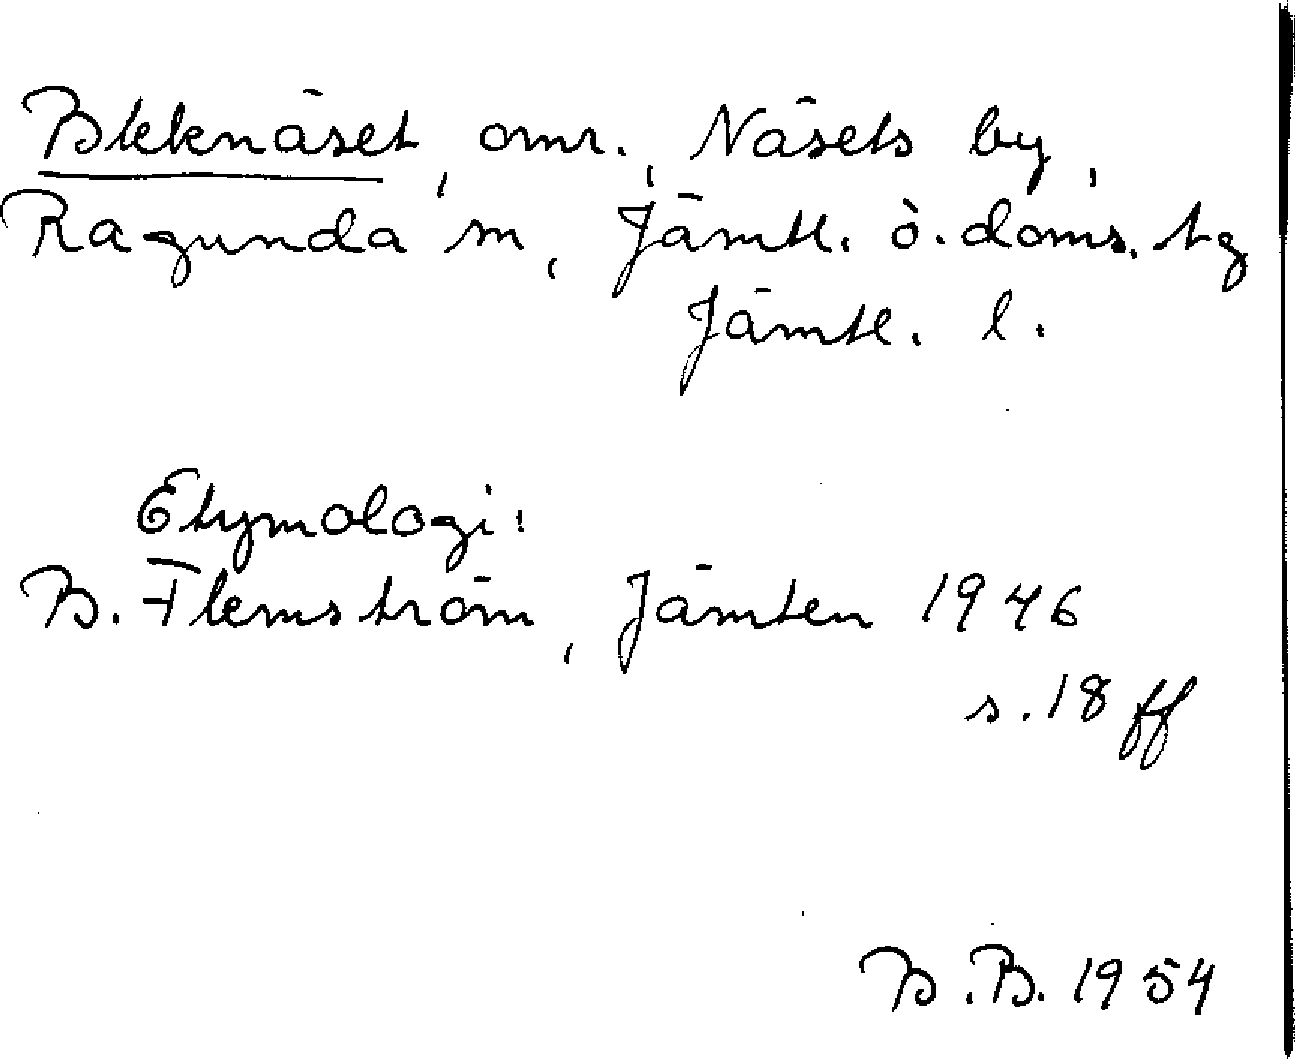 Bleknäset, omr., Näsets by,
Ragunda sn, Jämtl. ö. doms. tg
Jämtl. l.
Etymologi:
B. Flemström, Jämten 1946
s. 18 ff
B. B. 1954